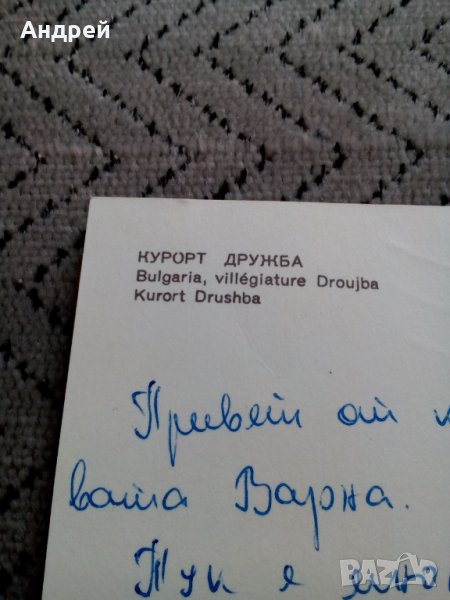 Андрей
КУРОРТ ДРУЖБА
Bulgaria, villégiature Droujba
Kurort Drushba
Привет от
вата Варна.
Тук е
BAZAR